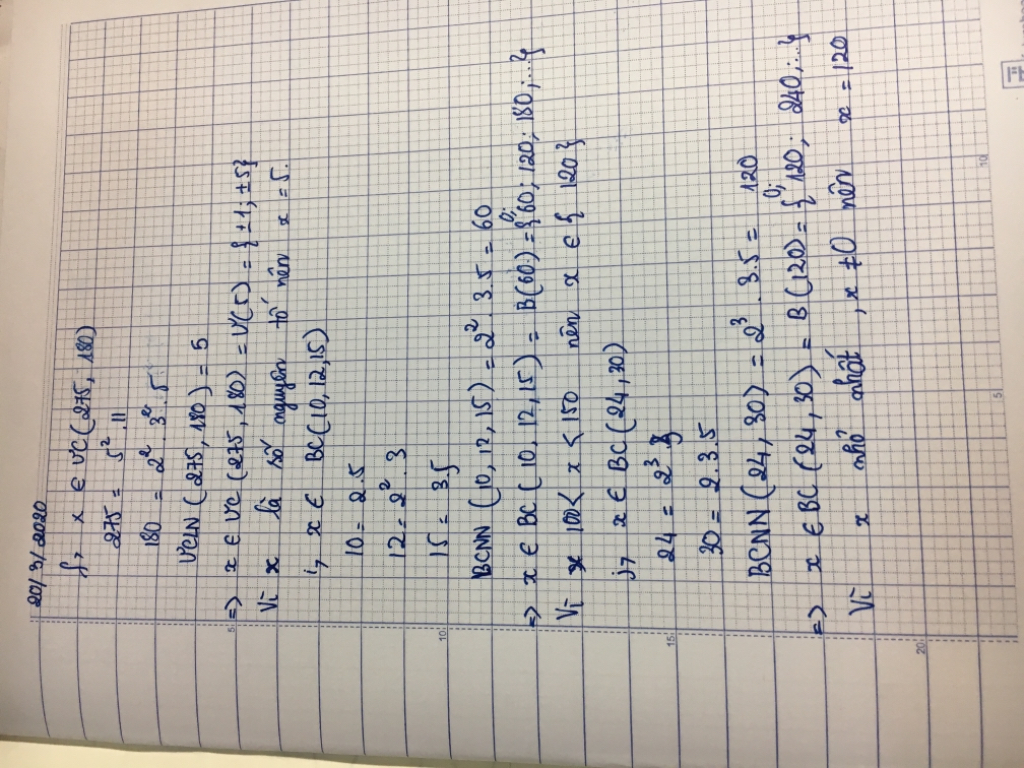 20/3/2020
f, x ∈ ƯC (275, 180)
275 = 5². 11
180 = 2². 3². 5
ƯCLN (275, 180) = 5
=> x ∈ ƯC (275, 180) = Ư(5) = { ±1; ±5}
Vì x là số nguyên tố nên x = 5.
i, x ∈ BC(10, 12, 15)
10 = 2.5
12 = 2². 3
15 = 3.5
BCNN (10, 12, 15) = 2². 3.5 = 60
=> x ∈ BC (10, 12, 15) = B(60) = {0; 60; 120; 180;...}
Vì 100 < x < 150 nên x ∈ { 120}
j, x ∈ BC (24, 30)
24 = 2³. 3
30 = 2.3.5
BCNN (24, 30) = 2³. 3.5 = 120
=> x ∈ BC (24, 30) = B (120) = {0; 120; 240;...}
Vì x nhỏ nhất, x ≠ 0 nên x = 120
5
10
15
20
5
10